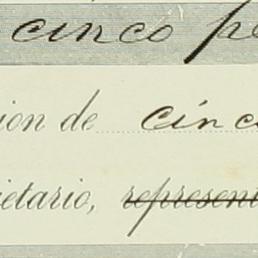 cinco pe
ion de cinc
ietario, represent